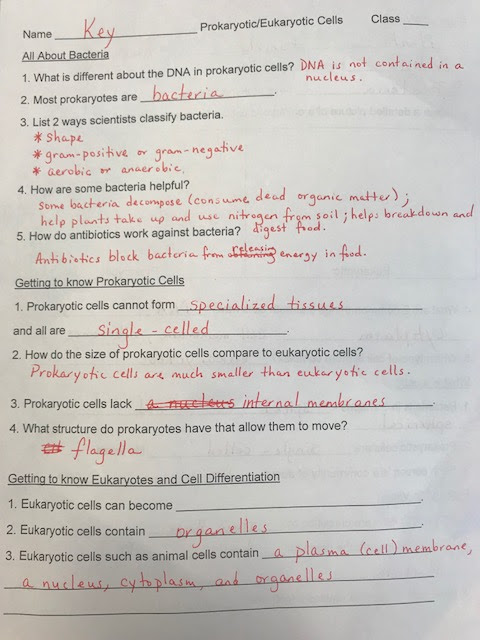 Name Key Prokaryotic/Eukaryotic Cells Class ____
All About Bacteria
1. What is different about the DNA in prokaryotic cells? DNA is not contained in a
nucleus.
2. Most prokaryotes are bacteria.
3. List 2 ways scientists classify bacteria.
* Shape
* gram-positive or gram-negative
* aerobic or anaerobic.
4. How are some bacteria helpful?
Some bacteria decompose (consume dead organic matter);
help plants take up and use nitrogen from soil; helps breakdown and
digest food.
5. How do antibiotics work against bacteria?
Antibiotics block bacteria from obtaining releasing energy in food.
Getting to know Prokaryotic Cells
1. Prokaryotic cells cannot form specialized tissues
and all are single-celled.
2. How do the size of prokaryotic cells compare to eukaryotic cells?
Prokaryotic cells are much smaller than eukaryotic cells.
3. Prokaryotic cells lack a nucleus internal membranes.
4. What structure do prokaryotes have that allow them to move?
flagella
Getting to know Eukaryotes and Cell Differentiation
1. Eukaryotic cells can become ____.
2. Eukaryotic cells contain organelles.
3. Eukaryotic cells such as animal cells contain a plasma (cell) membrane,
a nucleus, cytoplasm, and organelles